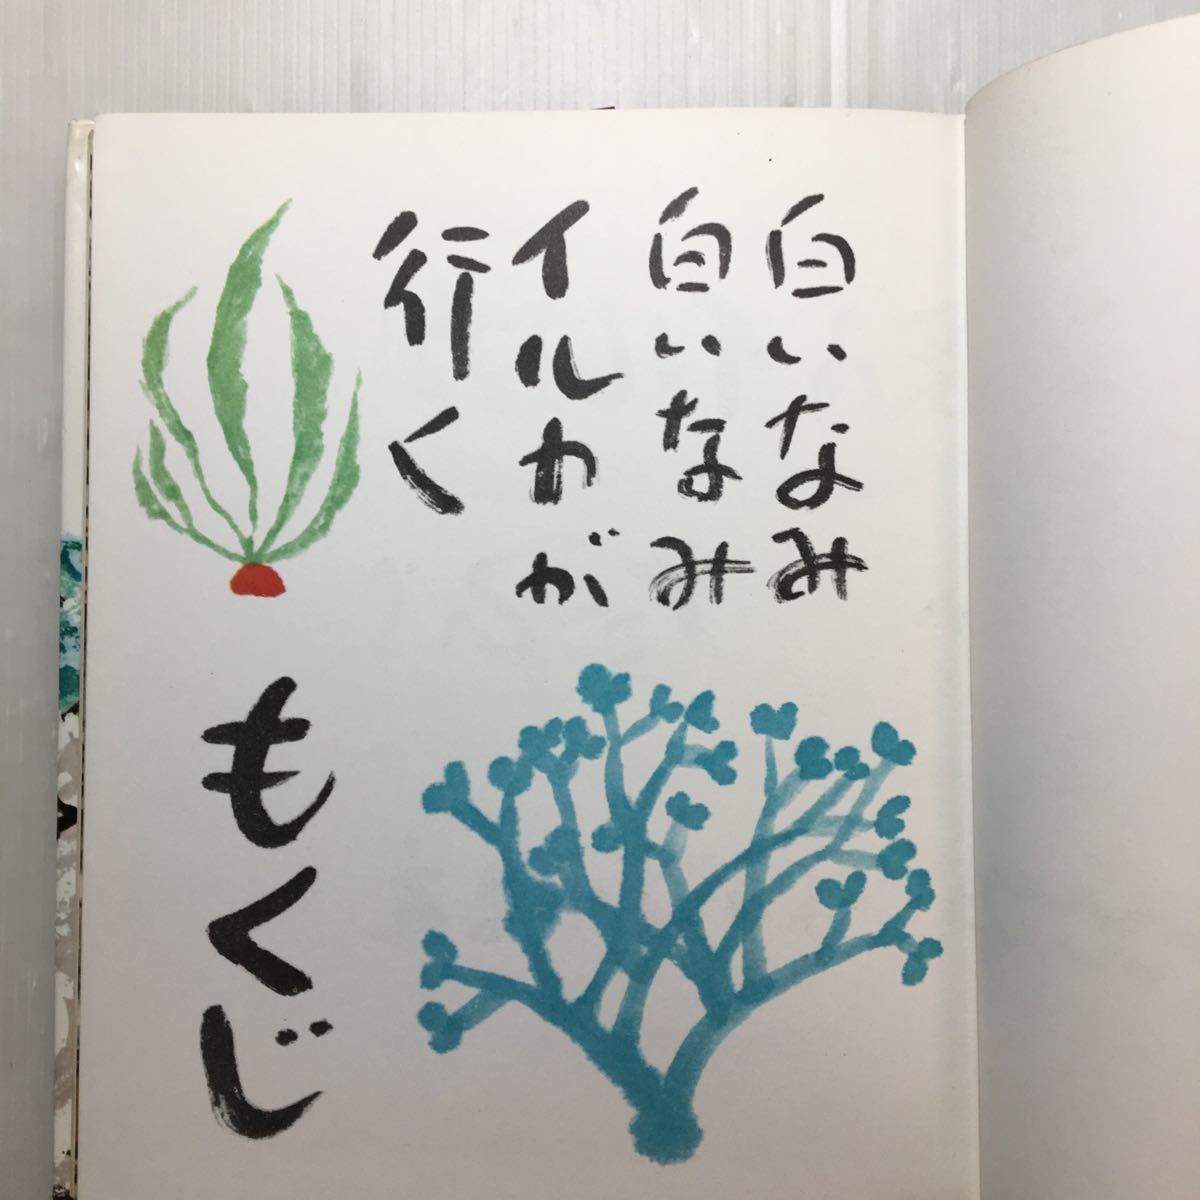 白いなみ
白いなみ
イルカが
行く
もくじ